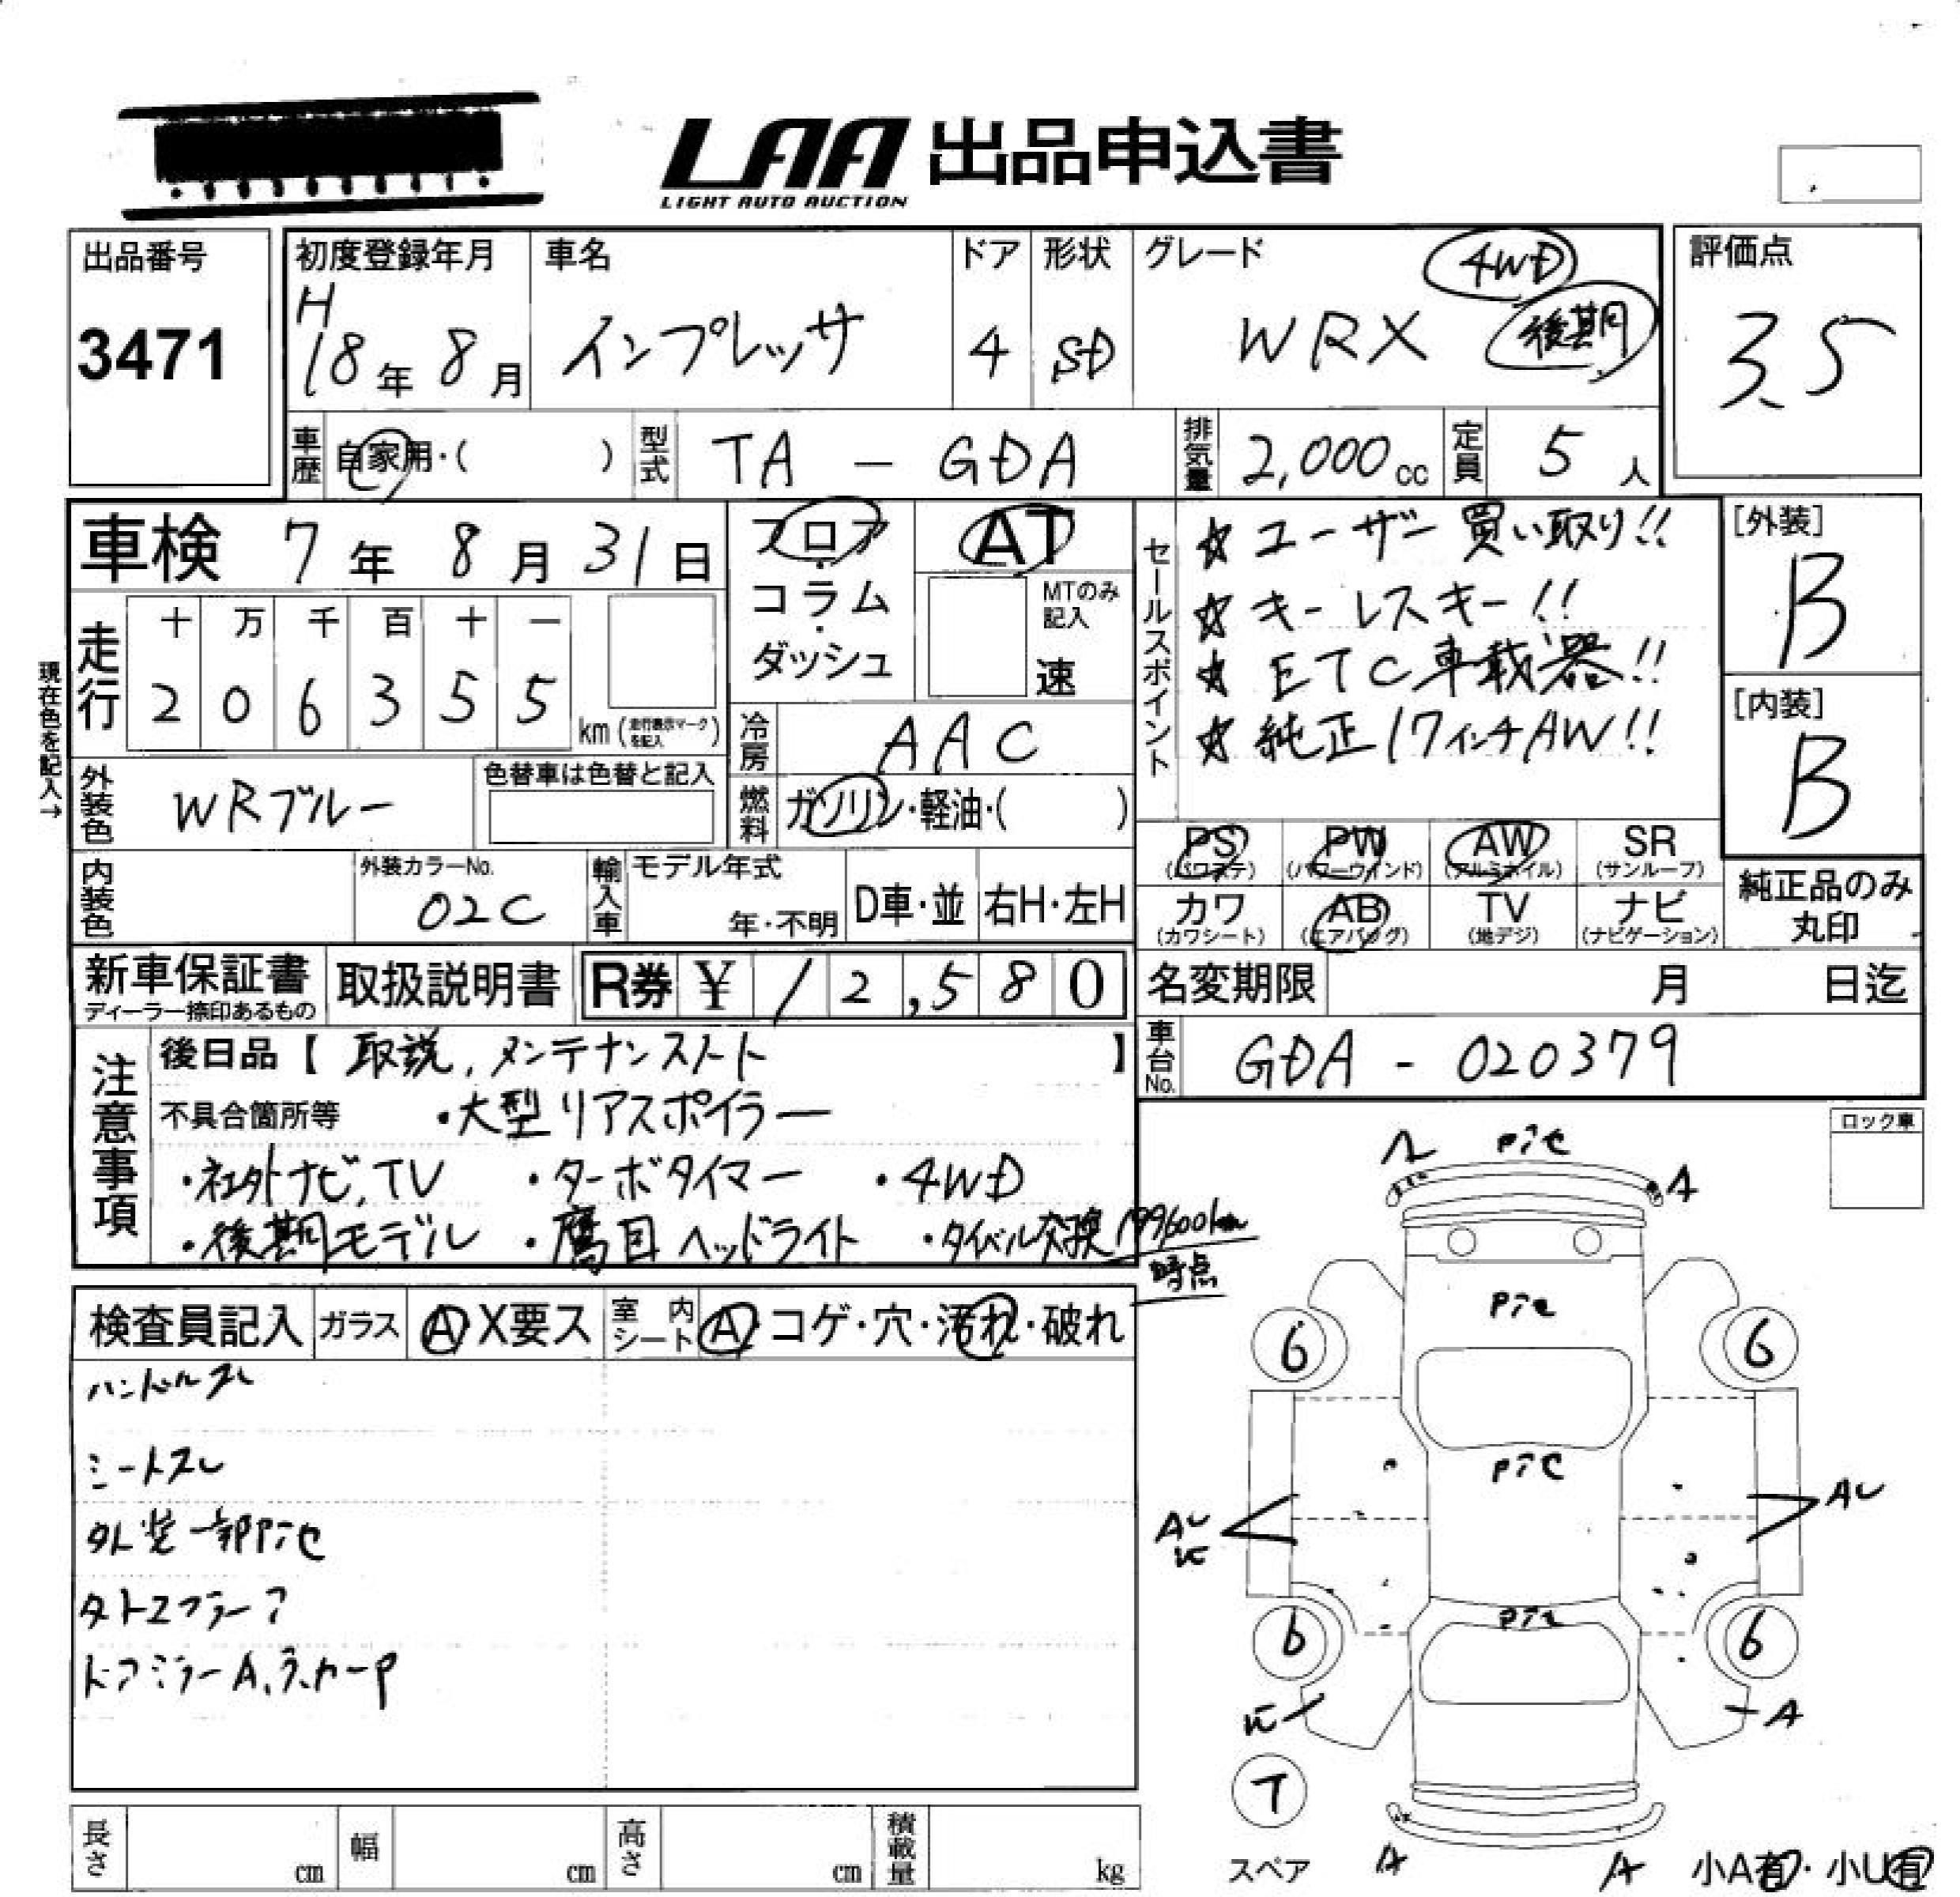 LAA 出品申込書
LIGHT AUTO AUCTION
出品番号
3471
初度登録年月
H
18年 8月
車名
インプレッサ
ドア
4
形状
SD
グレード
4WD
WRX
後期
評価点
3.5
車歴
自家用・( )
型式
TA - GDA
排気量
2,000cc
定員
5人
車検 7年 8月 31日
走行
十 万 千 百 十 一
2 0 6 3 5 5
km (走行表示マークを記入)
現在色を記入→
フロア
・
コラム
・
ダッシュ
AT
MTのみ記入
速
冷房
AAC
燃料
ガソリン・軽油・( )
セールスポイント
☆ ユーザー買い取り!!
☆ キーレスキー!!
☆ ETC車載器!!
☆ 純正17インチAW!!
[外装]
B
[内装]
B
外装色
WRブルー
色替車は色替と記入
内装色
外装カラーNo.
02C
輸入車
モデル年式
年・不明
D車・並
右H・左H
PS
(パワステ)
PW
(パワーウインド)
AW
(アルミホイル)
SR
(サンルーフ)
カワ
(カワシート)
AB
(エアバッグ)
TV
(地デジ)
ナビ
(ナビゲーション)
純正品のみ
丸印
新車保証書
ディーラー捺印あるもの
取扱説明書
R券 ¥ 12,580
名変期限 月 日迄
車台No.
GDA - 020379
注意事項
後日品【 取説, メンテナンスノート 】
不具合箇所等 ・大型リアスポイラー
・社外ナビ,TV ・ターボタイマー ・4WD
・後期モデル ・鷹目ヘッドライト ・タイベル交換 199,600km
時点
ロック車
検査員記入
ガラス
A X要ス
室内シート
A コゲ・穴・汚れ・破れ
ハンドルスレ
シートスレ
外装一部pテセ
ドアミラーA、
A pテセ A
pテセ
6 6
pテセ
AU AU
pテセ
6 6
A
T
スペア
A A
小A有・小U有
長さ cm
幅 cm
高さ cm
積載量 kg